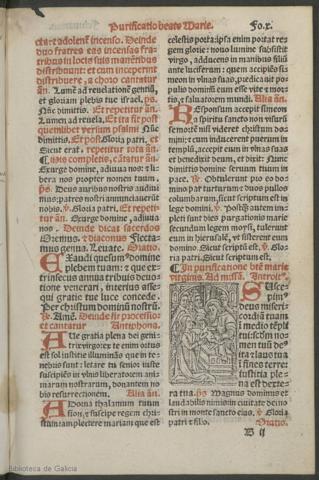 Purificatio beate Marie. Fo.x.
cẽs: et adolent incenso. Deinde
duo fratres eas incensas fra-
tribus in locis suis manẽtibus
distribuunt: et cum inceperint
distribuere, a choro cantatur
añ. Lumẽ ad reuelationẽ gentiũ,
et gloriam plebis tue israel. ps.
Nũc dimittis. Et repetitur añ.
Lumen. ad reuela. Et ita fit post
quemlibet versum psalmi Nũc
dimittis. Et post Gloria patri. et
Sicut erat. repetitur tota añ.
Quis completis, cãtatur añ.
Exurge domine, adiuua nos: et li-
bera nos propter nomen tuum.
ps. Deus auribus nostris audiui
mus: patres nostri annunciauerũt
nobis. ꝟ. Gloria patri. Et repeti-
tur añ. Exurge domine, adiuua
nos. Deinde dicat sacerdos
Oremus. et diaconus Flecta-
mus genua. Leuate. Oratio.
Exaudi quesumᵍ domine
plebem tuam: et que ex-
trinsecus annua tribuis deuo-
tione venerari, interius asse-
qui gratie tue luce concede.
Per christum dominũ nostrũ.
℟. Amẽ. Deinde fit processio:
et cantatur Antiphona.
Aue gratia plena dei geni-
trix virgo: ex te enim ortus
est sol iustitie illuminãs que in te-
nebris sunt: letare tu senior iuste
suscipiẽs in vlnis liberatorem ani-
marum nostrarum, donantem no
bis resurrectionem. Alia añ.
Adorna thalamum tuum
sion, et suscipe regem chri-
stum: amplectere mariam que est
celestis porta: ipsa enim portat re
gem glorie: nouo lumine subsistit
virgo, adducens in manibus filiũ
ante luciferum: quem accipiẽs si-
meon in vlnas suas, predicauit po
pulis dominum esse vite et mor-
tis, et saluatorem mundi. Alia añ.
Responsum accepit simeon
a spiritu sancto non visurũ
se mortẽ nisi videret christum do-
mini: et cum inducerent puerum in
templũ, accepit eum in vlnas suas
et benedixit deum, et dixit: Nunc
dimittis domine seruum tuum in
pace. ꝟ. Obtulerunt pro eo do-
mino par turturum et duos pullos
columbarum, sicut scriptum est in
lege domini. ꝟ. Postq̃ autem im-
pleti sunt dies purgationis marie
secundum legem moysi, tulerunt
eum in hierusalẽ, vt sisterent eum
domino. Sicut scriptũ est. ꝟ. Glo
ria patri. Sicut scriptum est.
In purificatione btẽ marie
virginis. Ad missã. Introitᵍ.
Susce-
pimᵍ
deus miseri-
cordiã tuam
ĩ medio tẽpli
tui: scd̃m no-
mẽ tuũ deus
ita et laus tua
ĩ fines terre:
iustitia ple-
na est dexte-
ra tua. ps. Magnus dominus et
laudabilis nimis: in ciuitate dei no
stri in monte sancto eius. ꝟ. Glo-
ria patri et filio. Oratio.
B ij
Biblioteca de Galicia